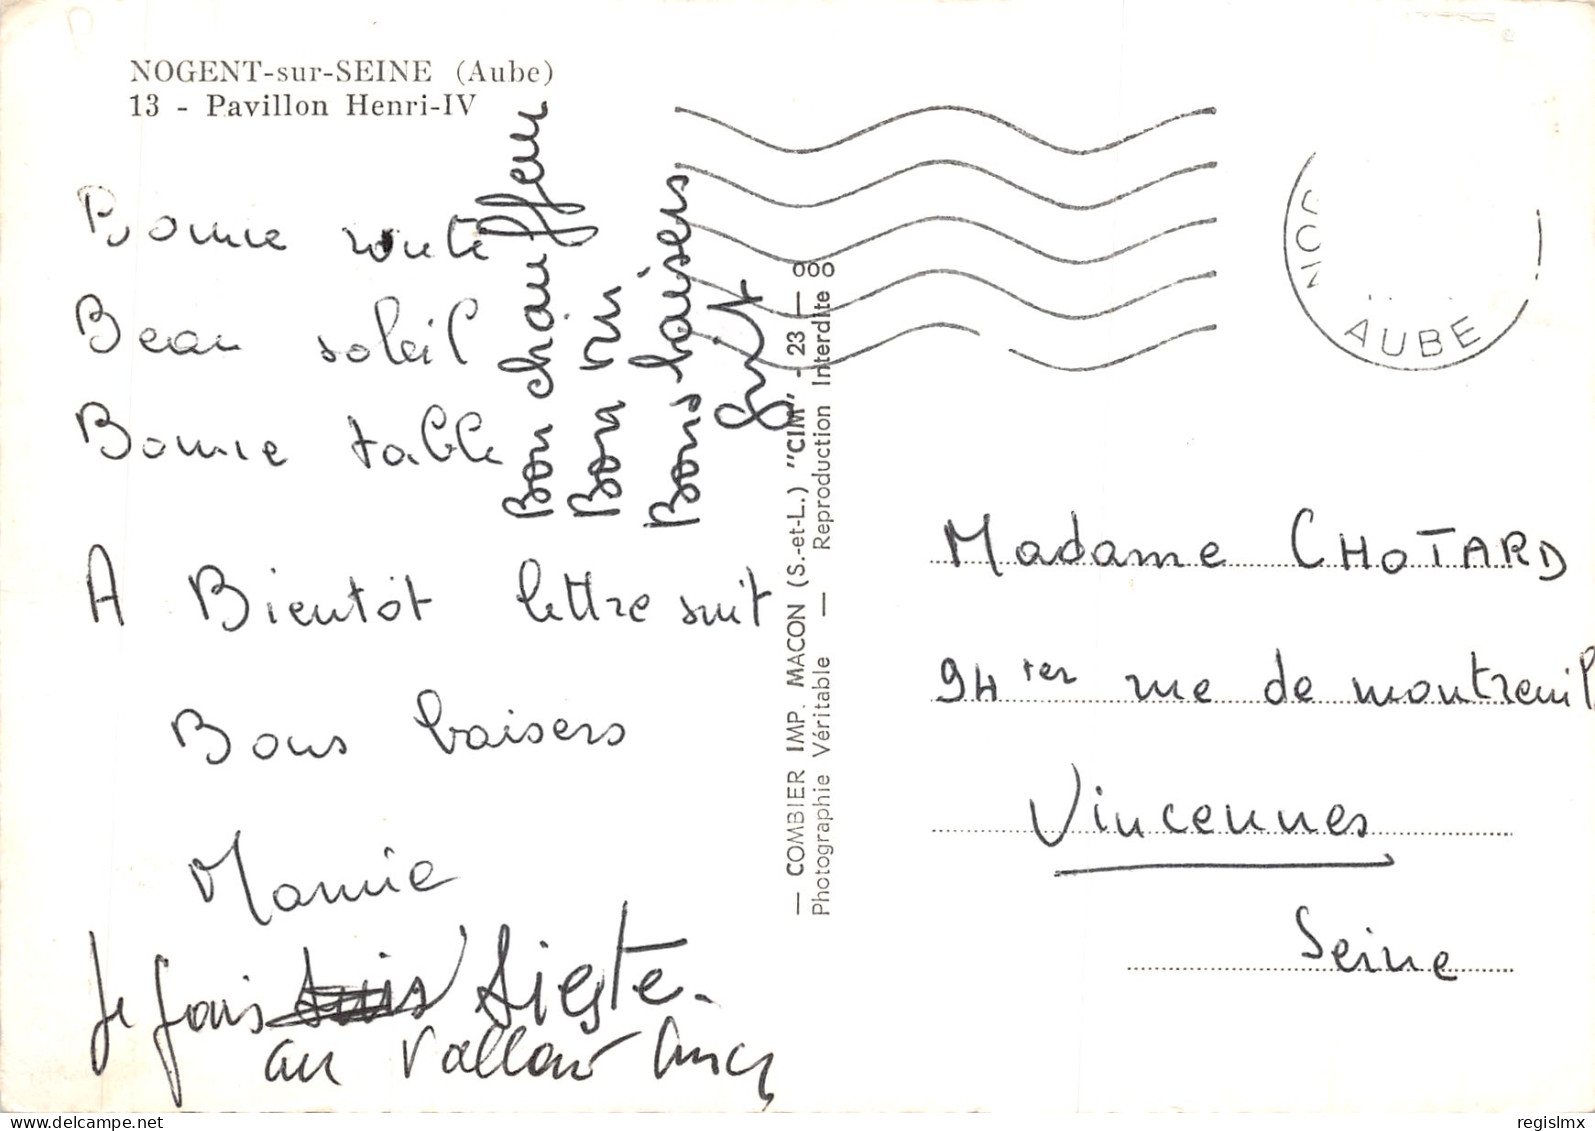 NOGENT-sur-SEINE (Aube)
13 - Pavillon Henri-IV
Bonne route
Beau soleil
Bonne table
Bon chauffeur
Bon vin
Bons baisers
A Bientôt lettre suit
Bons baisers
Mamie
Je fais Sieste.
au Vallon
— COMBIER IMP. MACON (S.-et-L.) "CIM" - 23 — 000
Photographie Véritable — Reproduction Interdite 8
AUBE
Madame CHOTARD
94 ter rue de montreuil
Vincennes
Seine
www.delcampe.net
regislmx